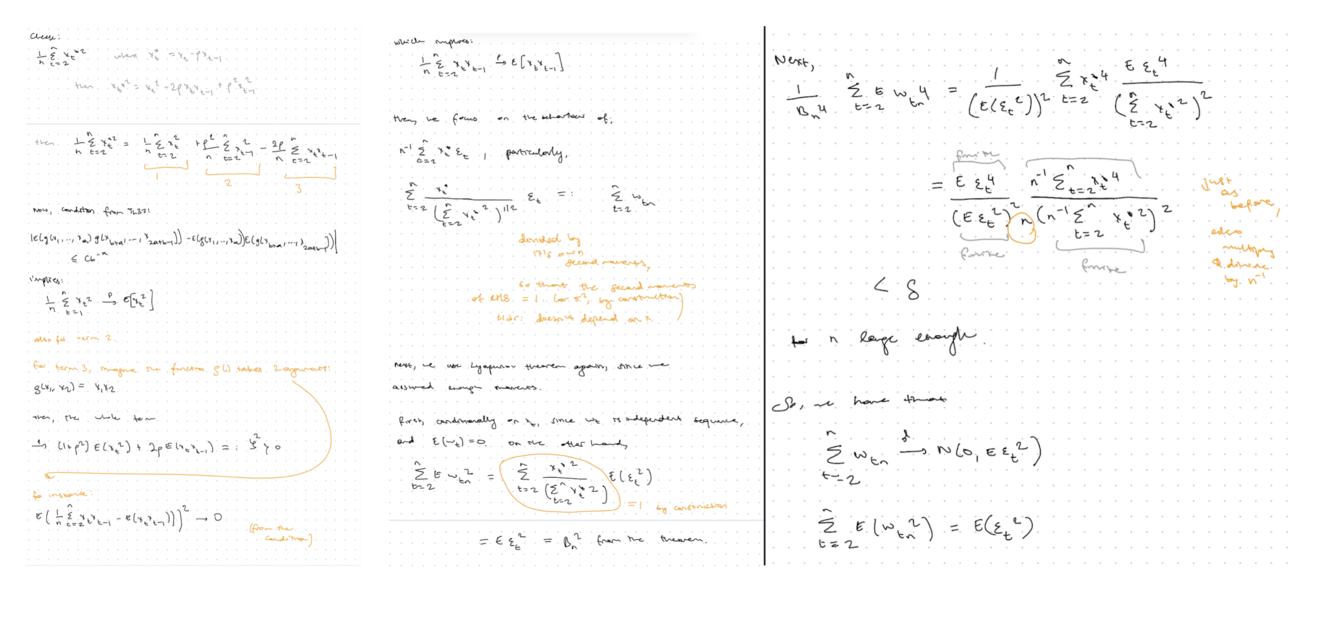 Choose:
1/n Σ_{t=2}^n x_t*² where x_t* = x_t - ρx_{t-1}
then x_t*² = x_t² - 2ρx_t x_{t-1} + ρ²x_{t-1}²
then 1/n Σ_{t=2}^n x_t*² = 1/n Σ_{t=2}^n x_t² + ρ²/n Σ_{t=2}^n x_{t-1}² - 2ρ/n Σ_{t=2}^n x_t x_{t-1}
1 2 3
now, condition from
≤ Cb^{-κ}
implies:
1/n Σ_{t=1}^n x_t² →p E[x_t²]
also for term 2.
for term 3, imagine the function g() takes 2 arguments:
g(x₁, x₂) = x₁x₂
then, the whole term
→p (1+ρ²) E(x_t²) + 2ρ E(x_t x_{t-1}) =: ξ² > 0
for instance:
E(1/n Σ_{t=2}^n x_t x_{t-1} - E(x_t x_{t-1}))² → 0
(from the
condition)
which implies:
1/n Σ_{t=2}^n x_t x_{t-1} →p E[x_t x_{t-1}]
then, we focus on the behaviour of,
n^{-1} Σ_{t=2}^n x_t* ε_t , particularly,
Σ_{t=2}^n x_t* / (Σ_{t=2}^n x_t*²)^{1/2} ε_t =: Σ_{t=2}^n w_{tn}
divided by
its own
second moments,
so that the second moments
of RHS = 1. (or σ², by construction)
tldr: doesn't depend on x
next, we use Lyapunov theorem again, since we
assumed enough moments.
first, conditionally on x_t, since w_t is independent sequence,
and E(w_t)=0. on the other hand,
Σ_{t=2}^n E w_{tn}² = Σ_{t=2}^n x_t*² / (Σ_{t=2}^n x_t*²) E(ε_t²)
= 1 by construction
= E ε_t² = B_n² from the theorem.
Next,
1/B_n⁴ Σ_{t=2}^n E w_{tn}⁴ = 1/(E(ε_t²))² Σ_{t=2}^n x_t*⁴ E ε_t⁴ / (Σ_{t=2}^n x_t*²)²
finite
= E ε_t⁴ / (E ε_t²)² n^{-1} Σ_{t=2}^n x_t*⁴ / n (n^{-1} Σ_{t=2}^n x_t*²)²
finite finite
just
as
before,
multiply
& divide
by n^{-1}
< δ
n large enough.
So, we have that
Σ_{t=2}^n w_{tn} →d N(0, E ε_t²)
Σ_{t=2}^n E(w_{tn}²) = E(ε_t²)